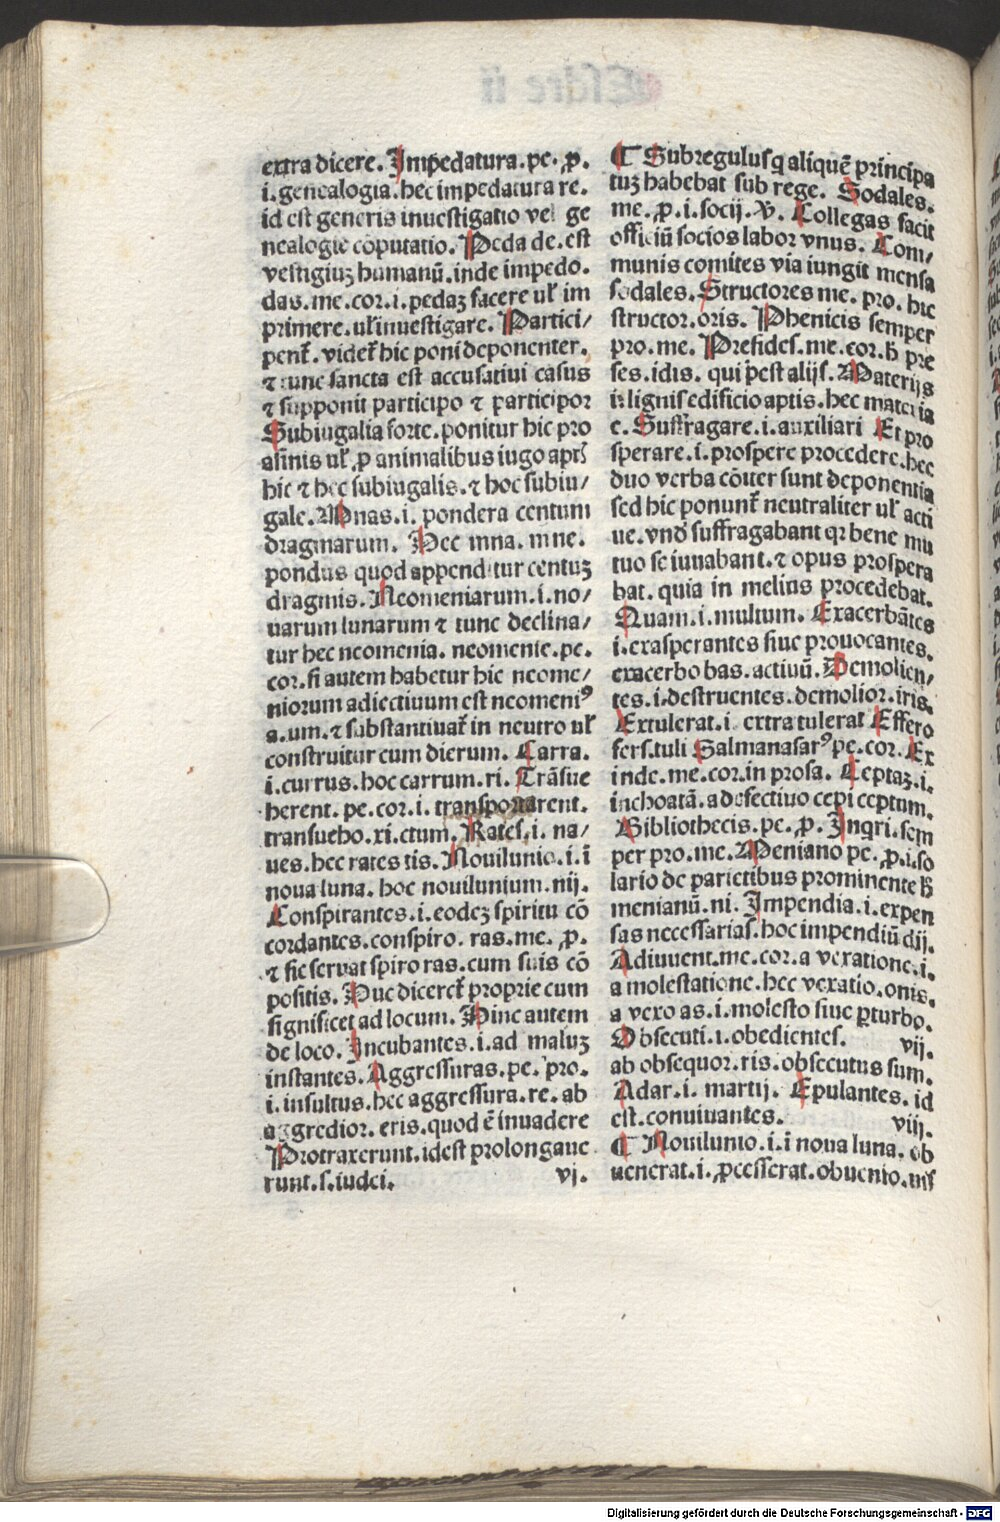 extra dicere. Impedatura.pe. ꝓ.
i.genealogia.hec impedatura re.
id est generis inuestigatio vel ge
nealogie cōputatio. Peda de.est
vestigiuꝫ humanū.inde impedo.
das.me.cor.i.pedaꝫ facere uł im
primere.uł inuestigare. Partici/
pent̄. videt̄ hic poni deponenter.
⁊ tunc sancta est accusatiui casus
⁊ supponit participo ⁊ participor
Subiugalia forte.ponitur hic pro
asinis uł.ꝓ animalibus iugo apt̄s
hic ⁊ hec subiugalis.⁊ hoc subiu/
gale. Mnas.i. pondera centum
dragmarum. Hec mna. mne.
pondus quod appenditur centuꝫ
dragmis. Neomeniarum.i.no/
uarum lunarum ⁊ tunc declina/
tur hec neomenia. neomenie.pe.
cor.si autem habetur hic neome/
niorum adiectiuum est neomeniꝰ
a.um.⁊ substantiuat̄ in neutro uł
construitur cum dierum. Carra.
i.currus.hoc carrum.ri. Trāsue
herent. pe.cor.i. transportarent.
transueho.xi.ctum. Rates.i. na/
ues.hec rates tis. Nouilunio.i.ī
noua luna. hoc nouilunium.nij.
Conspirantes.i.eodeꝫ spiritu cō
cordantes.conspiro. ras.me. ꝓ.
⁊ sic seruat spiro ras.cum suis cō
positis. Huc diceret̄ proprie cum
significet ad locum. Hinc autem
de loco. Incubantes.i.ad maluꝫ
instantes. Aggressuras.pe. pro.
i.insultus.hec aggressura.re. ab
aggredior. eris.quod ē inuadere
Protraxerunt.idest prolongaue
runt.s.iudei. vj.
¶ Subregulus q aliquē principa
tuꝫ habebat sub rege. Sodales.
me. ꝓ.i.socij. V. Collegas facit
officiū socios labor vnus. Com/
munis comites via iungit mensa
sodales. Structores me. pro. hic
structor.oris. Phenicis semper
pro.me. Presides.me.cor.h̄ pre
ses.idis. qui p̄est alijs. Materijs
i.lignis edificio aptis.hec materia
e. Suffragare.i.auxiliari Et pro
sperare.i.prospere procedere.hec
duo verba cōiter sunt deponentia
sed hic ponunt̄ neutraliter uł acti
ue.vnd̄ suffragabant qr bene mu
tuo se iuuabant.⁊ opus prospera
bat. quia in melius procedebat.
Quam.i.multum. Exacerbātes
i.exasperantes siue prouocantes.
exacerbo bas.actiuū. Demolien/
tes.i.destruentes.demolior.iris.
Extulerat.i extra tulerat Effero
fers.tuli Salmanasarꝰ pe.cor. Ex
inde.me.cor.in prosa. Ceptaꝫ.i.
inchoatā.a defectiuo cepi ceptum.
Bibliothecis.pe. ꝓ. Inqri.sem
per pro.me. Meniano pe. ꝓ.i.so
lario de parietibus prominente h̄
menianū.ni. Impendia.i.expen
sas necessarias.hoc impendiū dij.
Adiuuent.me.cor.a vexatione.i.
a molestatione.hec vexatio.onis.
a vexo as.i.molesto siue ꝑturbo.
Obsecuti.i.obedientes. vij.
ab obsequor.ris.obsecutus sum.
Adar.i. martij. Epulantes. id
est.conuiuantes. viij.
¶ Nouilunio.i.ī noua luna. ob
uenerat.i.ꝓcesserat.obuenio.nis
Digitalisierung gefördert durch die Deutsche Forschungsgemeinschaft - DFG